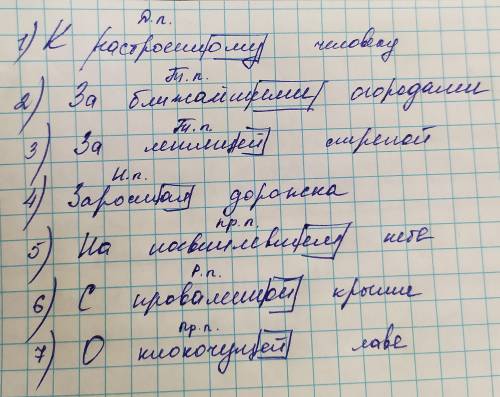 Д.п.
1) К настроенному человеку
Тв.п.
2) За ближайшими огородами
Тв.п.
3) За летящей стрелой
И.п.
4) Заросшая дорожка
пр.п.
5) На посветлевшем небе
Р.п.
6) С провалившейся крыши
Пр.п.
7) О клокочущей лаве